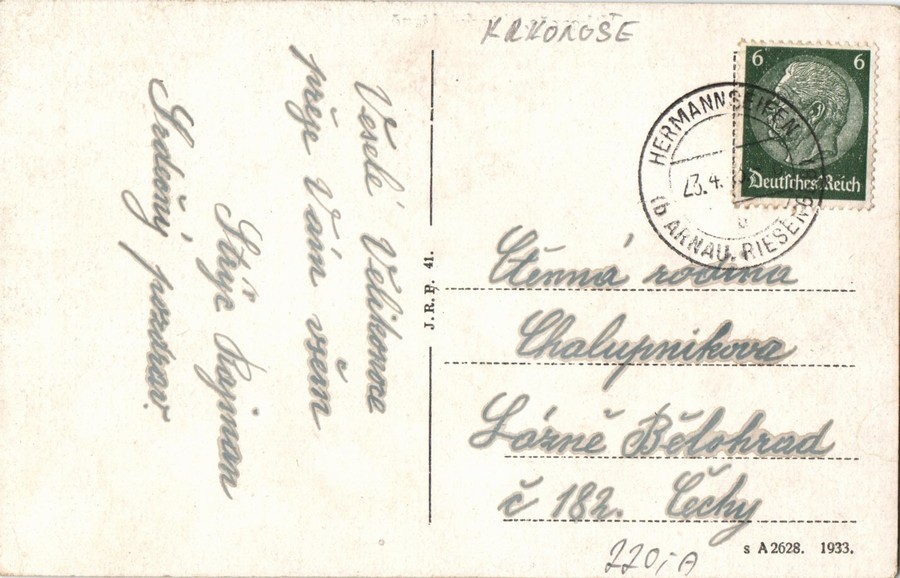 KRKONOŠE
6 6
Deutsches Reich
HERMANNSEIFEN
23.4.
(b ARNAU, RIESENG
Veselé Velikonoce
přeje Vám všem
Strýc Rajman
Srdečný pozdrav.
J. R. P. 41.
Ctěnná rodina
Chalupnikova
Lázně Bělohrad
č 182. Čechy
220,- A
s A 2628. 1933.